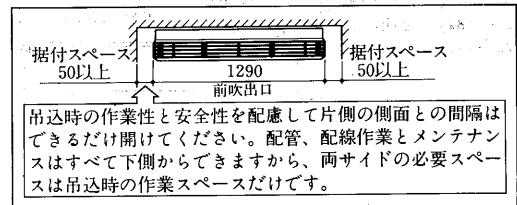 据付スペース
50以上
1290
前吹出口
据付スペース
50以上
吊込時の作業性と安全性を配慮して片側の側面との間隔は
できるだけ開けてください。配管、配線作業とメンテナ
ンスはすべて下側からできますから、両サイドの必要スペー
スは吊込時の作業スペースだけです。